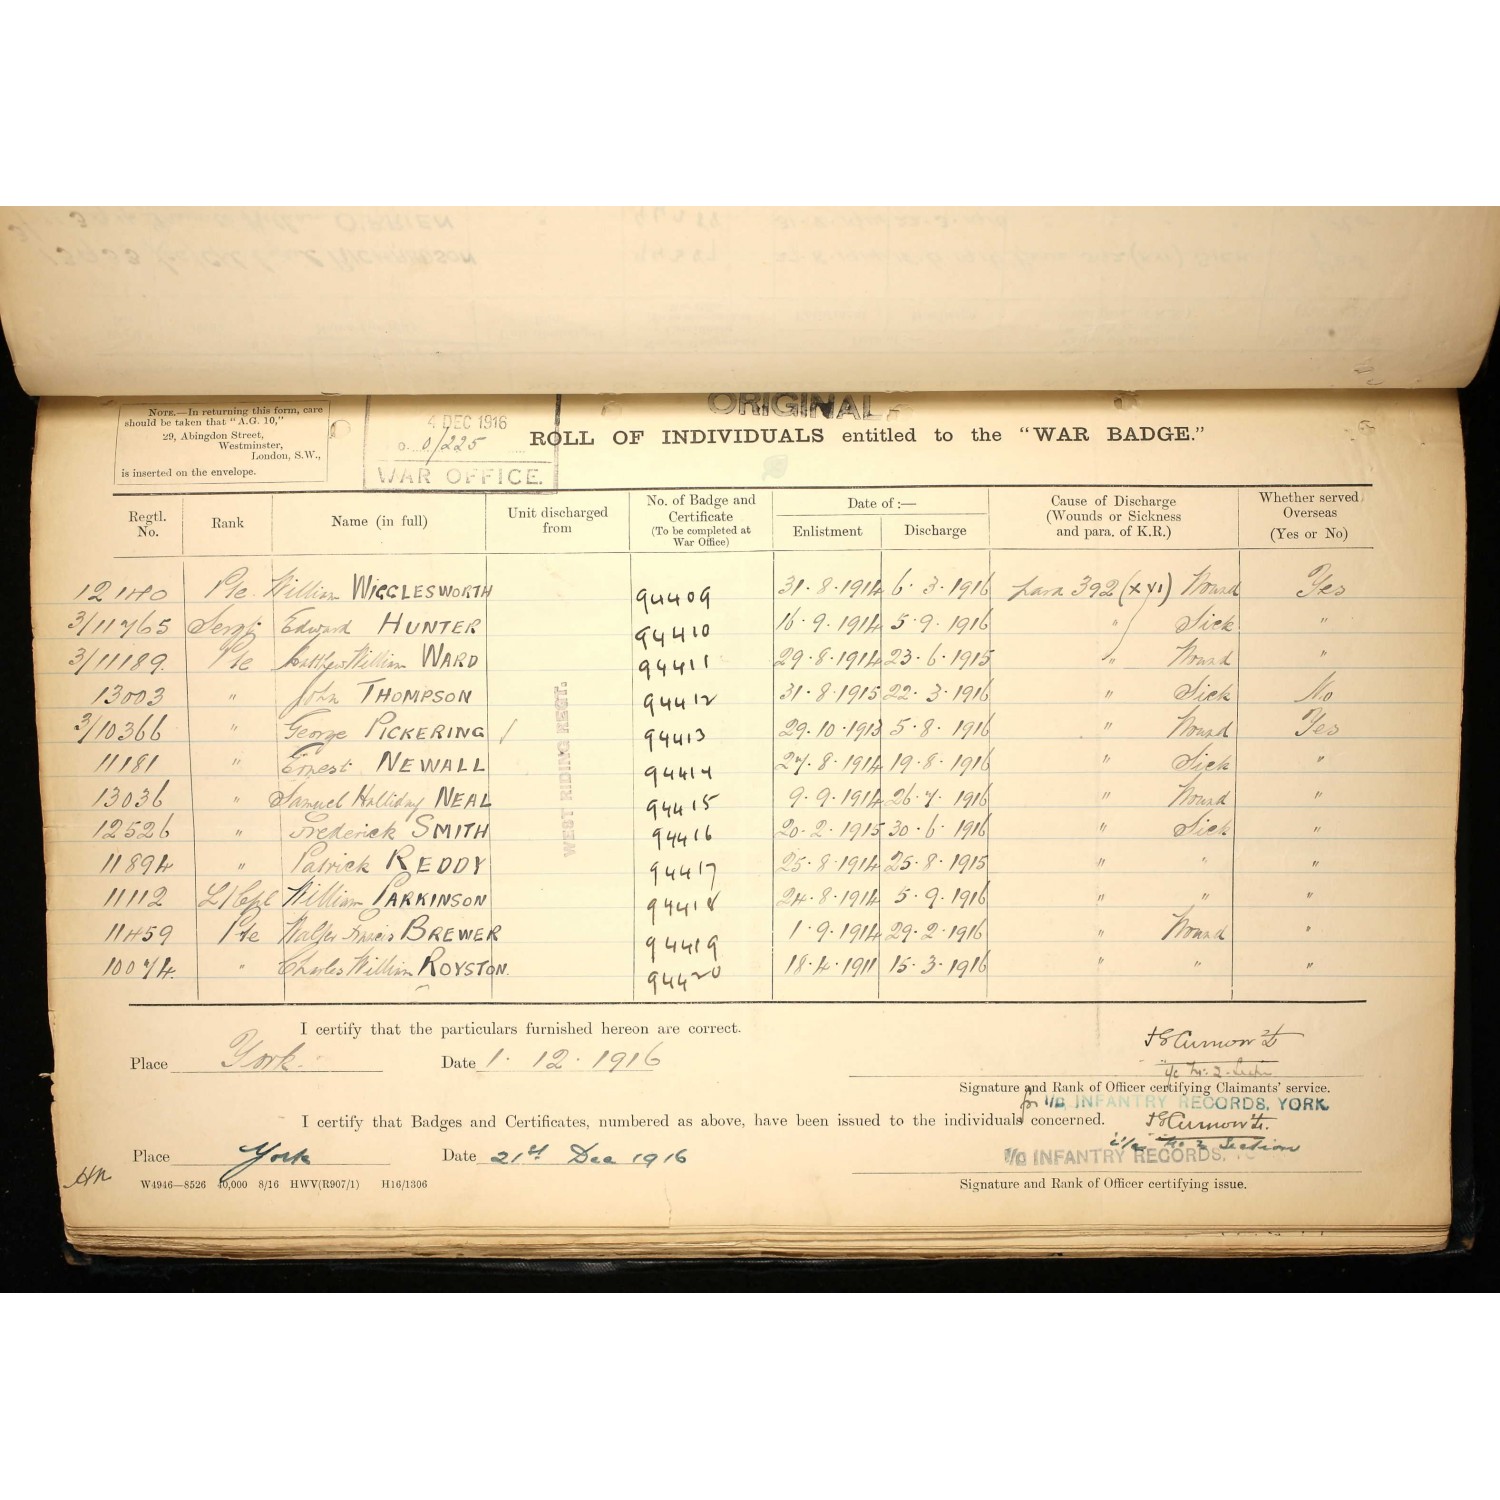 NOTE.—In returning this form, care
should be taken that "A.G. 10,"
29, Abingdon Street,
Westminster,
London, S.W.,
is inserted on the envelope.
4 DEC 1916
0/225
WAR OFFICE.
ORIGINAL
ROLL OF INDIVIDUALS entitled to the "WAR BADGE."
Regtl. No. Rank Name (in full) Unit discharged from No. of Badge and Certificate (To be completed at War Office) Date of :— Enlistment Discharge Cause of Discharge (Wounds or Sickness and para. of K.R.) Whether served Overseas (Yes or No)
12140 Pte William WIGGLESWORTH 94409 31.8.1914 6.3.1916 para 392 (xvi) Wound Yes
3/11765 Sergt Edward HUNTER 94410 16.9.1914 5.9.1916 " Sick "
3/11189. Pte Matthew William WARD 94411 29.8.1914 23.6.1915 " Wound "
13003 " John THOMPSON 94412 31.8.1915 22.3.1916 " Sick No
3/10366 " George PICKERING / 94413 29.10.1913 5.8.1916 " Wound Yes
11181 " Ernest NEWALL 94414 27.8.1914 19.8.1916 " Sick "
13036 " Samuel Halliday NEAL 94415 9.9.1914 26.7.1916 " Wound "
12526 " Frederick SMITH 94416 20.2.1915 30.6.1916 " Sick "
11894 " Patrick REDDY 94417 25.8.1914 25.8.1915 " " "
11112 L/Cpl William PARKINSON 94418 24.8.1914 5.9.1916 " " "
11459 Pte Walter Francis BREWER 94419 1.9.1914 29.2.1916 " Wound "
10074. " Charles William ROYSTON. 94420 18.4.1911 15.3.1916 " " "
WEST RIDING REGT.
I certify that the particulars furnished hereon are correct.
Place York. Date 1.12.1916
Signature and Rank of Officer certifying Claimants' service.
for I/C INFANTRY RECORDS, YORK
I certify that Badges and Certificates, numbered as above, have been issued to the individuals concerned.
Place York Date 21st Dec 1916
i/c No 2 Section
I/C INFANTRY RECORDS.
W4946—8526 40,000 8/16 HWV(R907/1) H16/1306
Signature and Rank of Officer certifying issue.